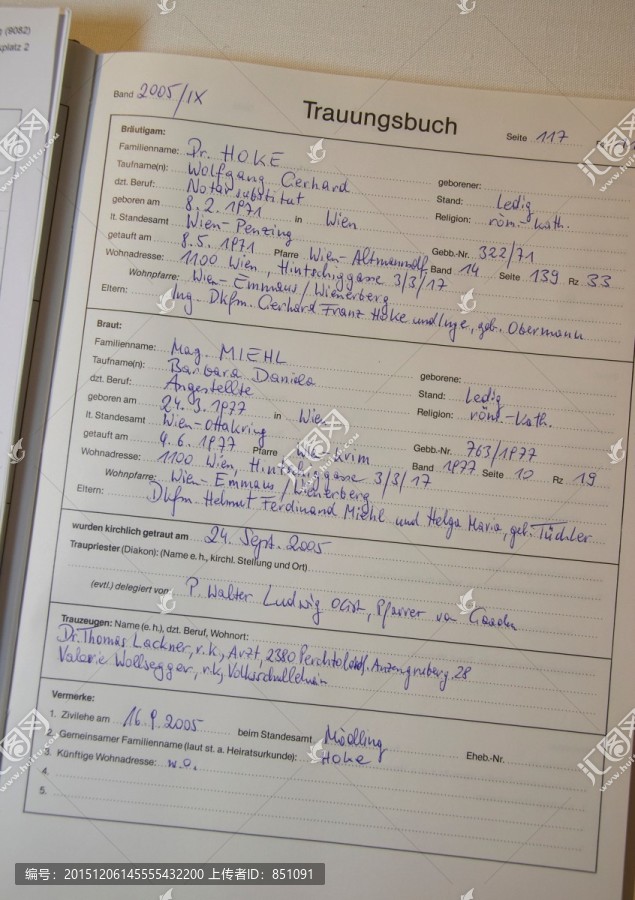 (9082)
platz 2
Band 2005/IX
Trauungsbuch
Seite 117
Bräutigam:
Familienname: Dr. HOKE geborener:
Taufname(n): Wolfgang Gerhard Stand: Ledig
dzt. Beruf: Notarsubstitut Religion: röm.-kath.
geboren am 8.2.1971 in Wien
lt. Standesamt Wien-Penzing Gebb.-Nr. 322/71
getauft am 8.5.1971 Pfarre Wien-Altmannsdf. Band 14 Seite 139 Rz 33
Wohnadresse: 1100 Wien, Hintschiggasse 3/3/17
Wohnpfarre: Wien-Emmaus/Wienerberg
Eltern: Ing. Dkfm. Gerhard Franz Hoke und Inge, geb. Obermann
Braut:
Familienname: Mag. MIEHL geborene:
Taufname(n): Barbara Daniela Stand: Ledig
dzt. Beruf: Angestellte Religion: röm.-kath.
geboren am 24.3.1977 in Wien
lt. Standesamt Wien-Ottakring Gebb.-Nr. 763/1977
getauft am 4.6.1977 Pfarre Wien-Krim Band 1977 Seite 10 Rz 19
Wohnadresse: 1100 Wien, Hintschiggasse 3/3/17
Wohnpfarre: Wien-Emmaus/Wienerberg
Eltern: Dkfm. Helmut Ferdinand Miehl und Helga Maria, geb. Tüchler
wurden kirchlich getraut am 24. Sept. 2005
Traupriester (Diakon): (Name e. h., kirchl. Stellung und Ort)
(evtl.) delegiert von P. Walter Ludwig OCist, Pfarrer von Gaaden
Trauzeugen: Name (e. h.), dzt. Beruf, Wohnort:
Dr. Thomas Lackner, r.k., Arzt, 2380 Perchtoldsdf. Anzengruberg. 28
Valerie Wollsegger, r.k., Volksschullehrerin
Vermerke:
1. Zivilehe am 16.9.2005 beim Standesamt Mödling Eheb.-Nr.
2. Gemeinsamer Familienname (laut st. a. Heiratsurkunde): Hoke
3. Künftige Wohnadresse: w.o.
4.
5.
编号: 20151206145555432200 上传者ID: 851091